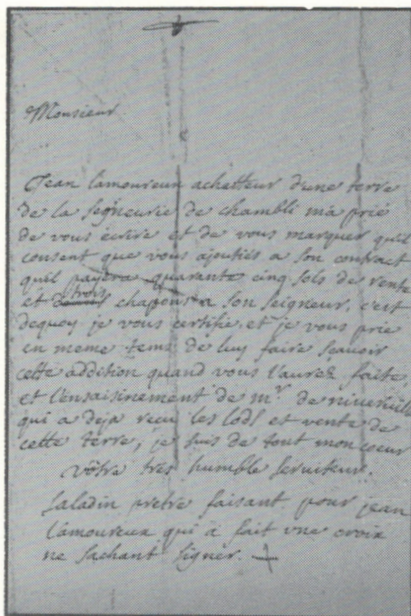 Monsieur
Jean lamoureux achetteur d'une terre
de la segneurie de chambli ma prié
de vous écrire et de vous marquer quil
consent que vous ajoutiés a son contract
quil payera quarante cinq sols de rente
et trois chapons a son seigneur, c'est
dequoy je vous certifie, et je vous prie
en meme tems de luy faire scavoir
cette addition quand vous l'aurez faite
et l'ensaisinement de mr. de
qui a deja recu les lods et vente de
cette terre, je suis de tout mon coeur
vôtre tres humble serviteur.
Saladin pretre faisant pour jean
lamoureux qui à fait une croix
ne sachant signer. +